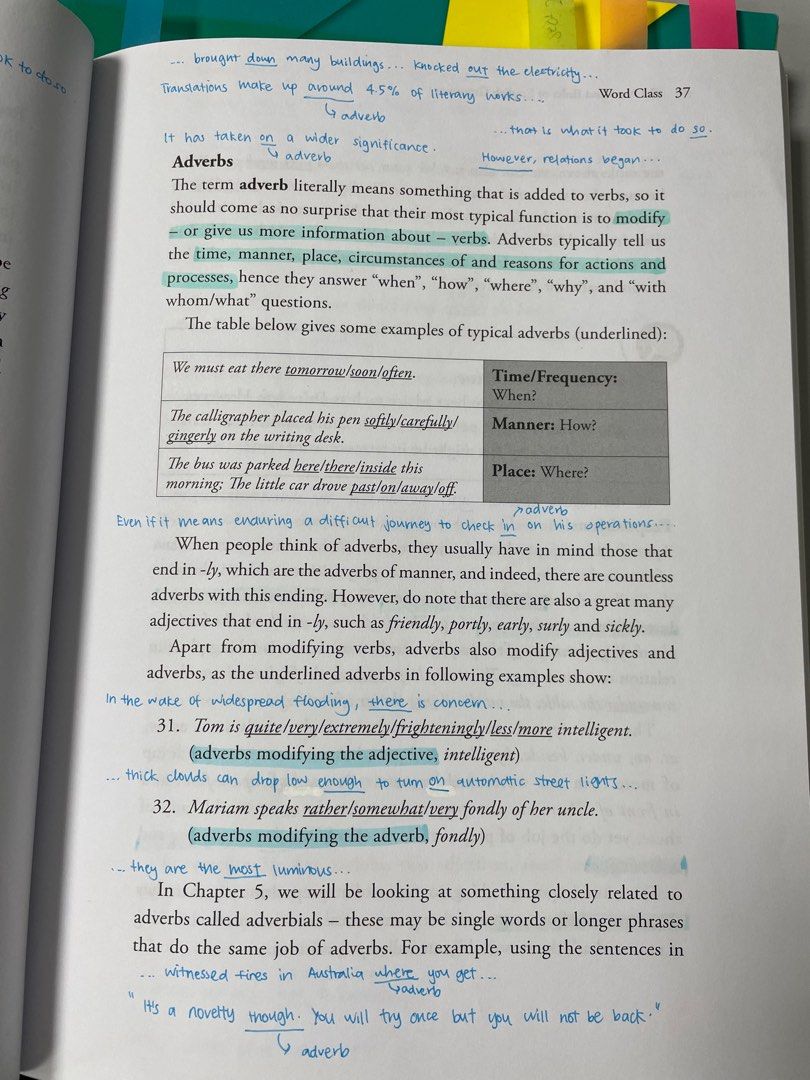 ... brought down many buildings... knocked out the electricity...
Translations make up around 4.5% of literary works....
Word Class 37
↳ adverb
...that is what it took to do so.
It has taken on a wider significance.
↳ adverb
However, relations began...
ok to do so
Adverbs
The term adverb literally means something that is added to verbs, so it
should come as no surprise that their most typical function is to modify
– or give us more information about – verbs. Adverbs typically tell us
the time, manner, place, circumstances of and reasons for actions and
processes, hence they answer “when”, “how”, “where”, “why”, and “with
whom/what” questions.
The table below gives some examples of typical adverbs (underlined):
We must eat there tomorrow/soon/often.
Time/Frequency:
When?
The calligrapher placed his pen softly/carefully/
gingerly on the writing desk.
Manner: How?
The bus was parked here/there/inside this
morning; The little car drove past/on/away/off.
Place: Where?
↗adverb
Even if it means enduring a difficult journey to check in on his operations....
When people think of adverbs, they usually have in mind those that
end in -ly, which are the adverbs of manner, and indeed, there are countless
adverbs with this ending. However, do note that there are also a great many
adjectives that end in -ly, such as friendly, portly, early, surly and sickly.
Apart from modifying verbs, adverbs also modify adjectives and
adverbs, as the underlined adverbs in following examples show:
In the wake of widespread flooding, there is concern...
31. Tom is quite/very/extremely/frighteningly/less/more intelligent.
(adverbs modifying the adjective, intelligent)
... thick clouds can drop low enough to turn on automatic street lights...
32. Mariam speaks rather/somewhat/very fondly of her uncle.
(adverbs modifying the adverb, fondly)
... they are the most luminous...
In Chapter 5, we will be looking at something closely related to
adverbs called adverbials – these may be single words or longer phrases
that do the same job of adverbs. For example, using the sentences in
... witnessed fires in Australia where you get...
↳adverb
"It's a novelty though. You will try once but you will not be back."
↳ adverb